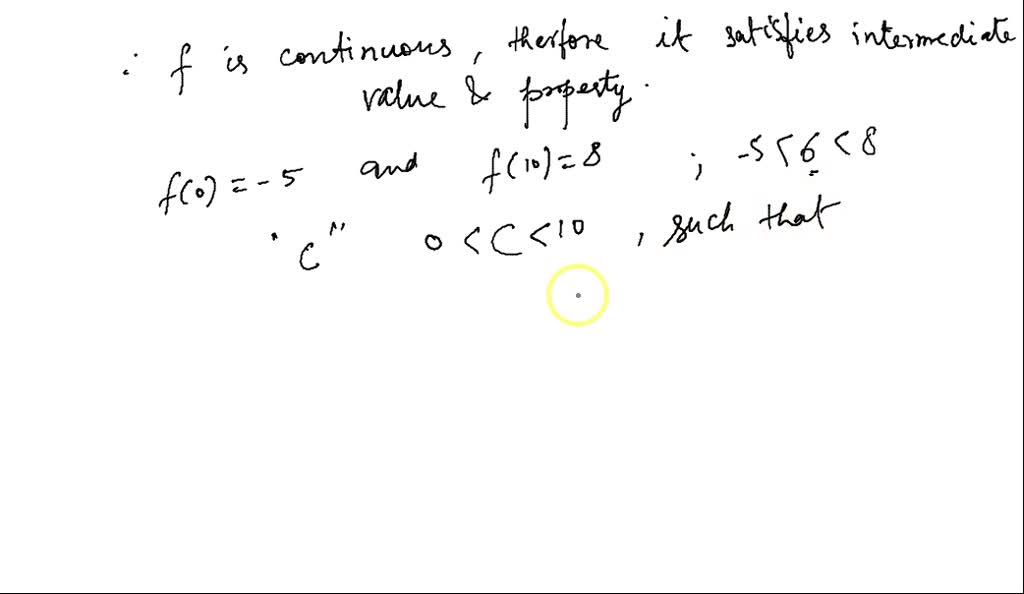 ∴ f is continuous, therfore it satisfies intermediate
value & property.
f(0) = -5 and f(10) = 8 ; -5 < 6 < 8
"c" 0 < C < 10 , such that